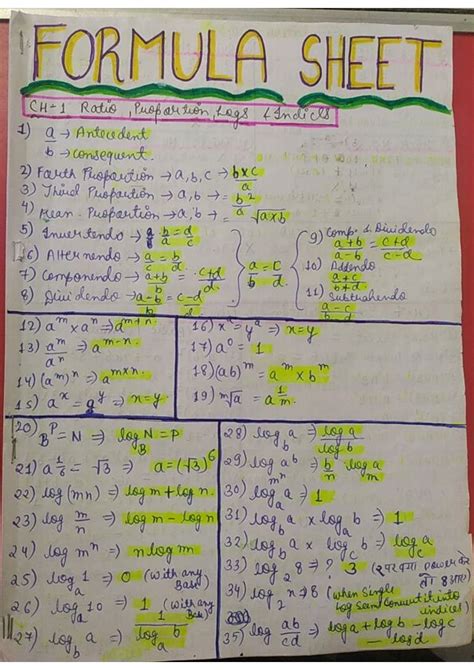 FORMULA SHEET
CH-1 Ratio, Propartion, Logs & Indices
1) a → Antecedent
b → consequent.
2) Fourth Propartion → a, b, c → b×c/a
3) Third Propartion → a, b → = b²/a
4) Mean - Propartion → a, b → = √a×b
5) Invertendo → b/a = d/c
6) Alternendo → a/c = b/d
7) Componendo → a+b/b = c+d/d
8) Dividendo → a-b/b = c-d/d
a/b = c/d
9) Comp. & Dividendo
a+b/a-b = c+d/c-d
10) Addendo
a+c/b+d
11) Subtrahendo
a-c/b-d
12) aᵐ × aⁿ ⇒ aᵐ⁺ⁿ
13) aᵐ/aⁿ ⇒ aᵐ⁻ⁿ
14) (aᵐ)ⁿ ⇒ aᵐˣⁿ
15) aˣ = aʸ ⇒ x=y
16) xᵃ = yᵃ ⇒ x=y
17) a⁰ = 1
18) (ab)ᵐ = aᵐ × bᵐ
19) ᵐ√a = a^1/m
20) Bᴾ = N ⇒ log_B N = P
21) a^1/6 = √3 ⇒ a = (√3)⁶
22) log (mn) ⇒ log m + log n.
23) log m/n ⇒ log m - log n
24) log mⁿ ⇒ n log m
25) log 1 ⇒ 0 (with any Base)
26) ⇒ 1 (with any Base)
27) log_b a ⇒ 1/log_a b
28) log_b a ⇒ log a/log b
29) ⇒ b/n log_m a
30) log_a a ⇒ 1
31) log_b a × log_a b ⇒ 1
32) log_b a × log_c b ⇒ log_c a
33) log_2 8 ⇒ ? 3 (2 पर क्या power के तो 8 आए)
34) (when single log seen convert it into indices)
35) log ab/cd ⇒ log a + log b - log c - log d